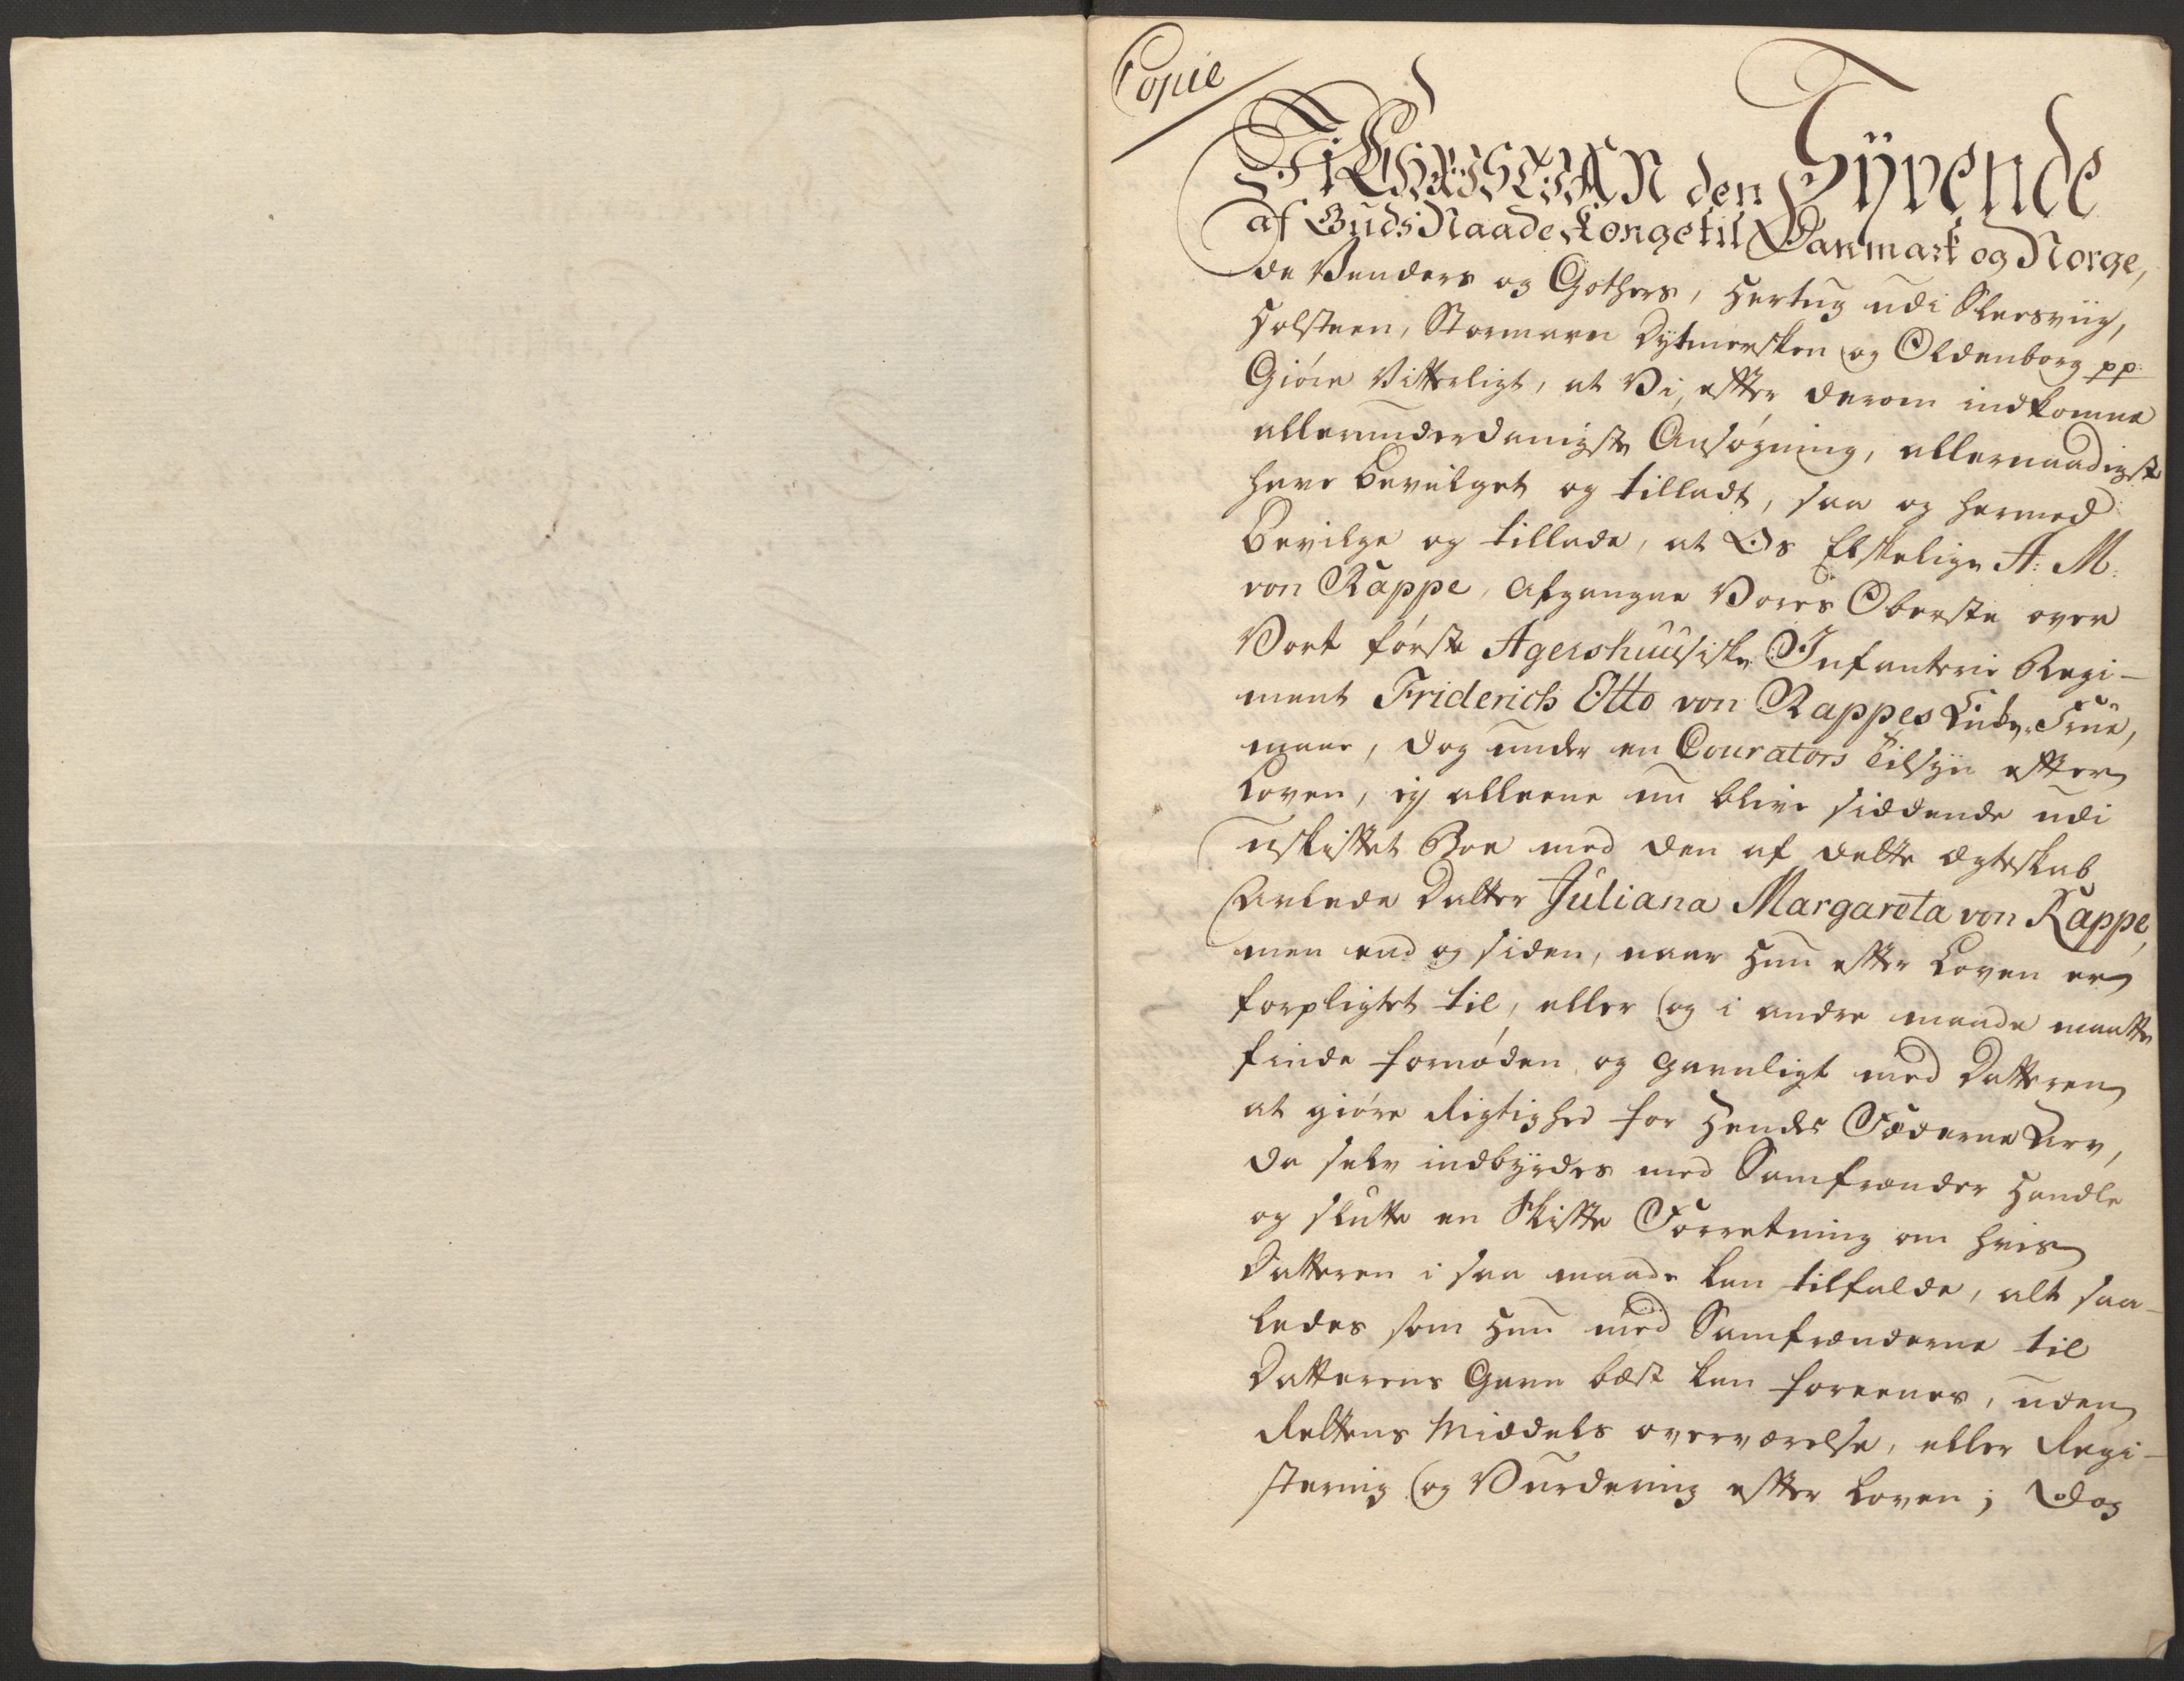 Copie
Wi CHRISTIAN den Syvende
af Guds Naade Konge til Danmark og Norge,
de Venders og Gothers, Hertug udi Slesviig,
Holsteen, Stormarn Dytmersken og Oldenborg pp:
Giöre Vitterligt, at Vi, efter derom indkomne
allerunderdanigste Ansøgning, allernaadigst
have bevilget og tilladt, saa og hermed
bevilge og tillade, at Os Elskelige A: M:
von Rappe, afgangne Vores Oberste over
Vort første Agershuusiske Infanterie Regi-
ment Friderich Otto von Rappes Enke-Frue,
maae, dog under en Courators Tilsyn efter
Loven, ey alleene nu blive siddende udi
uskiftet Boe med den af dette Ægteskab
Avlede Datter Juliana Margareta von Rappe,
men end og siden, naar Hun efter Loven er
forpligtet til, eller og i andre maade maatte
finde fornøden og gavnligt med Datteren
at giöre Rigtighed for Hendes Fæderne Arv,
da selv indbyrdes med Samfrænder Handle
og slutte en Skifte Forretning om hvis
Datteren i saa maade kan tilfalde, alt saa-
ledes som Hun med Samfrænderne til
Datterens Gavn bæst kan foreenes, uden
Rettens Middels overværelse, eller Regi-
stering og Vurdering efter Loven; Dog